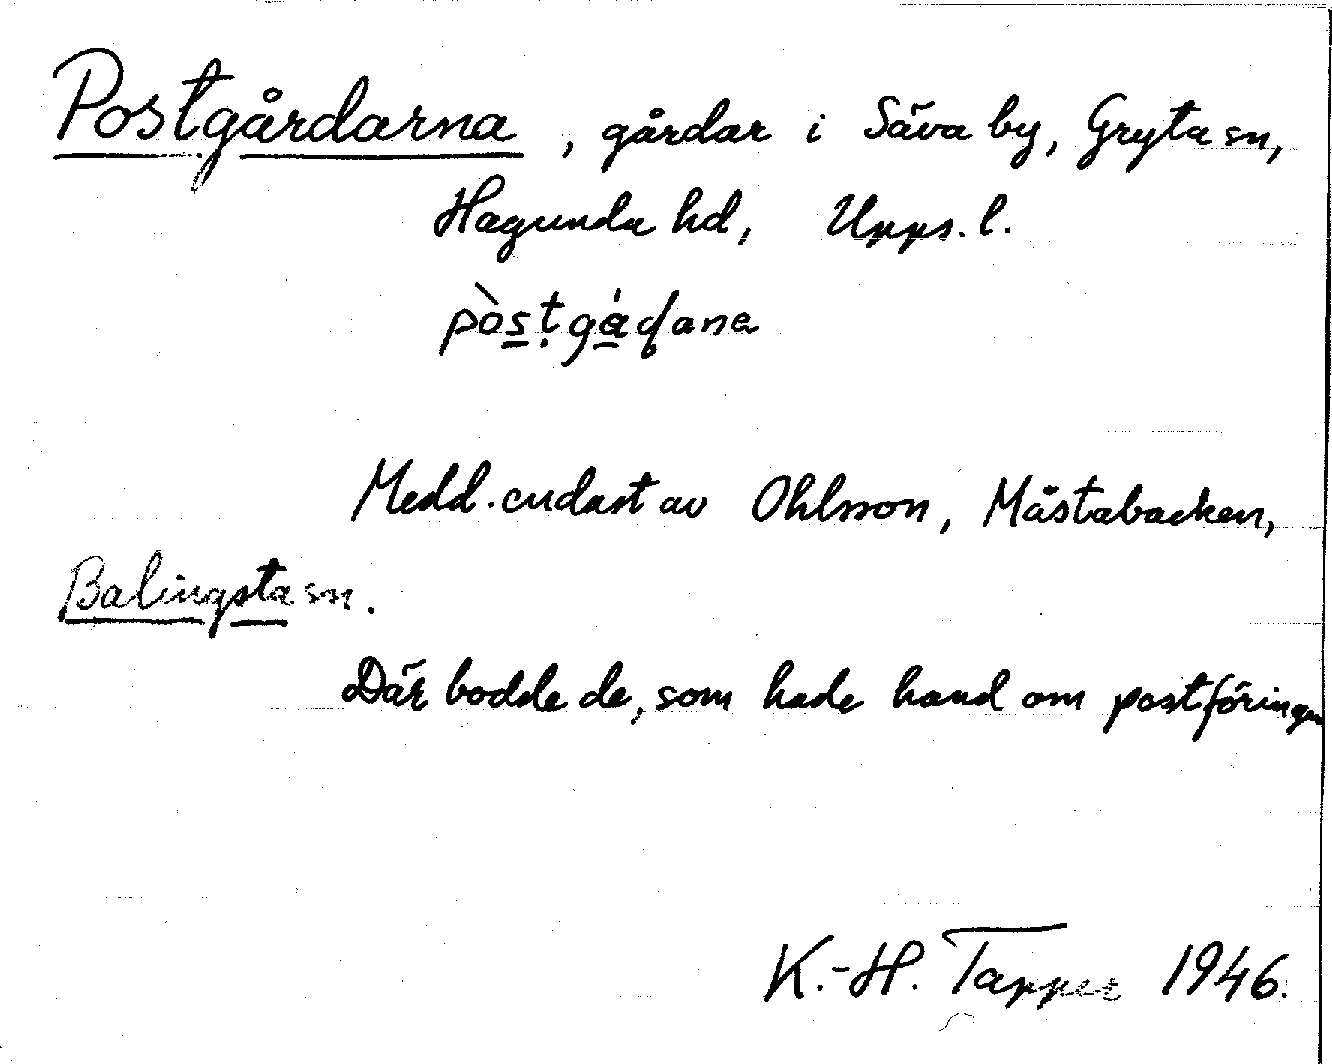 Postgårdarna, gårdar i Säva by, Gryta sn,
Hagunda hd, Upps. l.
pòstgá̱ḍana
Medd. endast av Ohlsson, Måstabacken,
Balingsta sn.
Där bodde de, som hade hand om postföringen
K.-H. Tapper 1946.